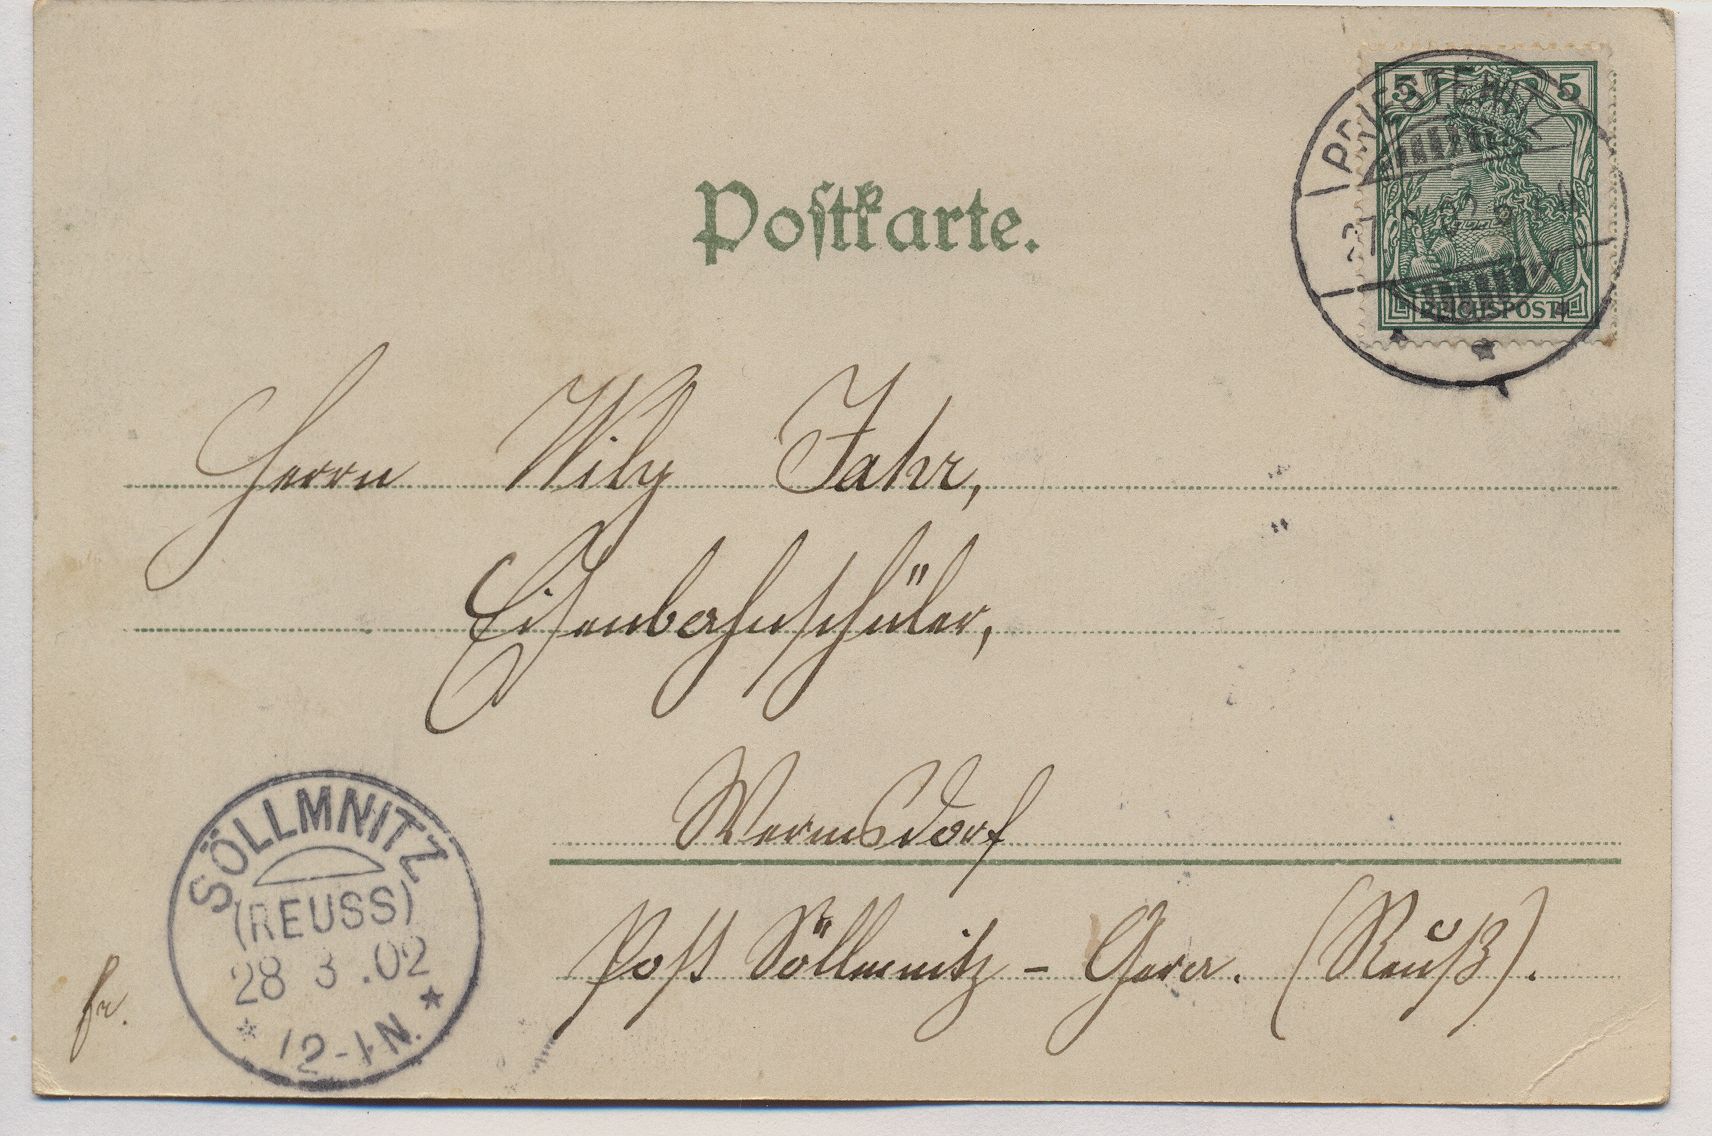 Postkarte.
5 5
PRIESTEWITZ
REICHSPOST
Herrn Wily Jahr,
Eisenbahnschüler,
Wernsdorf
Post Söllmnitz - Gera. (Reuß).
fr.
SÖLLMNITZ
(REUSS)
28 3 .02
* 12-1N. *